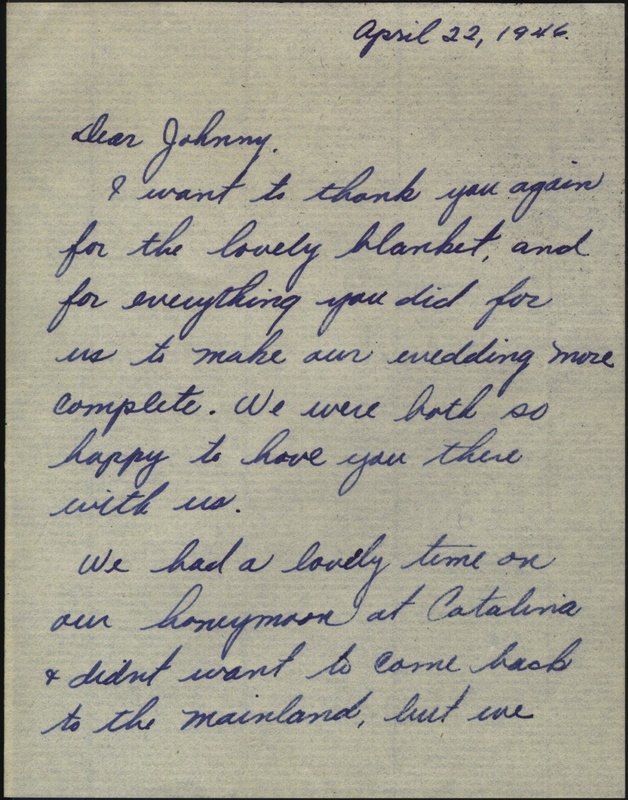 April 22, 1946.
Dear Johnny.
I want to thank you again
for the lovely blanket, and
for everything you did for
us to make our wedding more
complete. We were both so
happy to have you there
with us.
We had a lovely time on
our honeymoon at Catalina
& didnt want to come back
to the mainland, but we